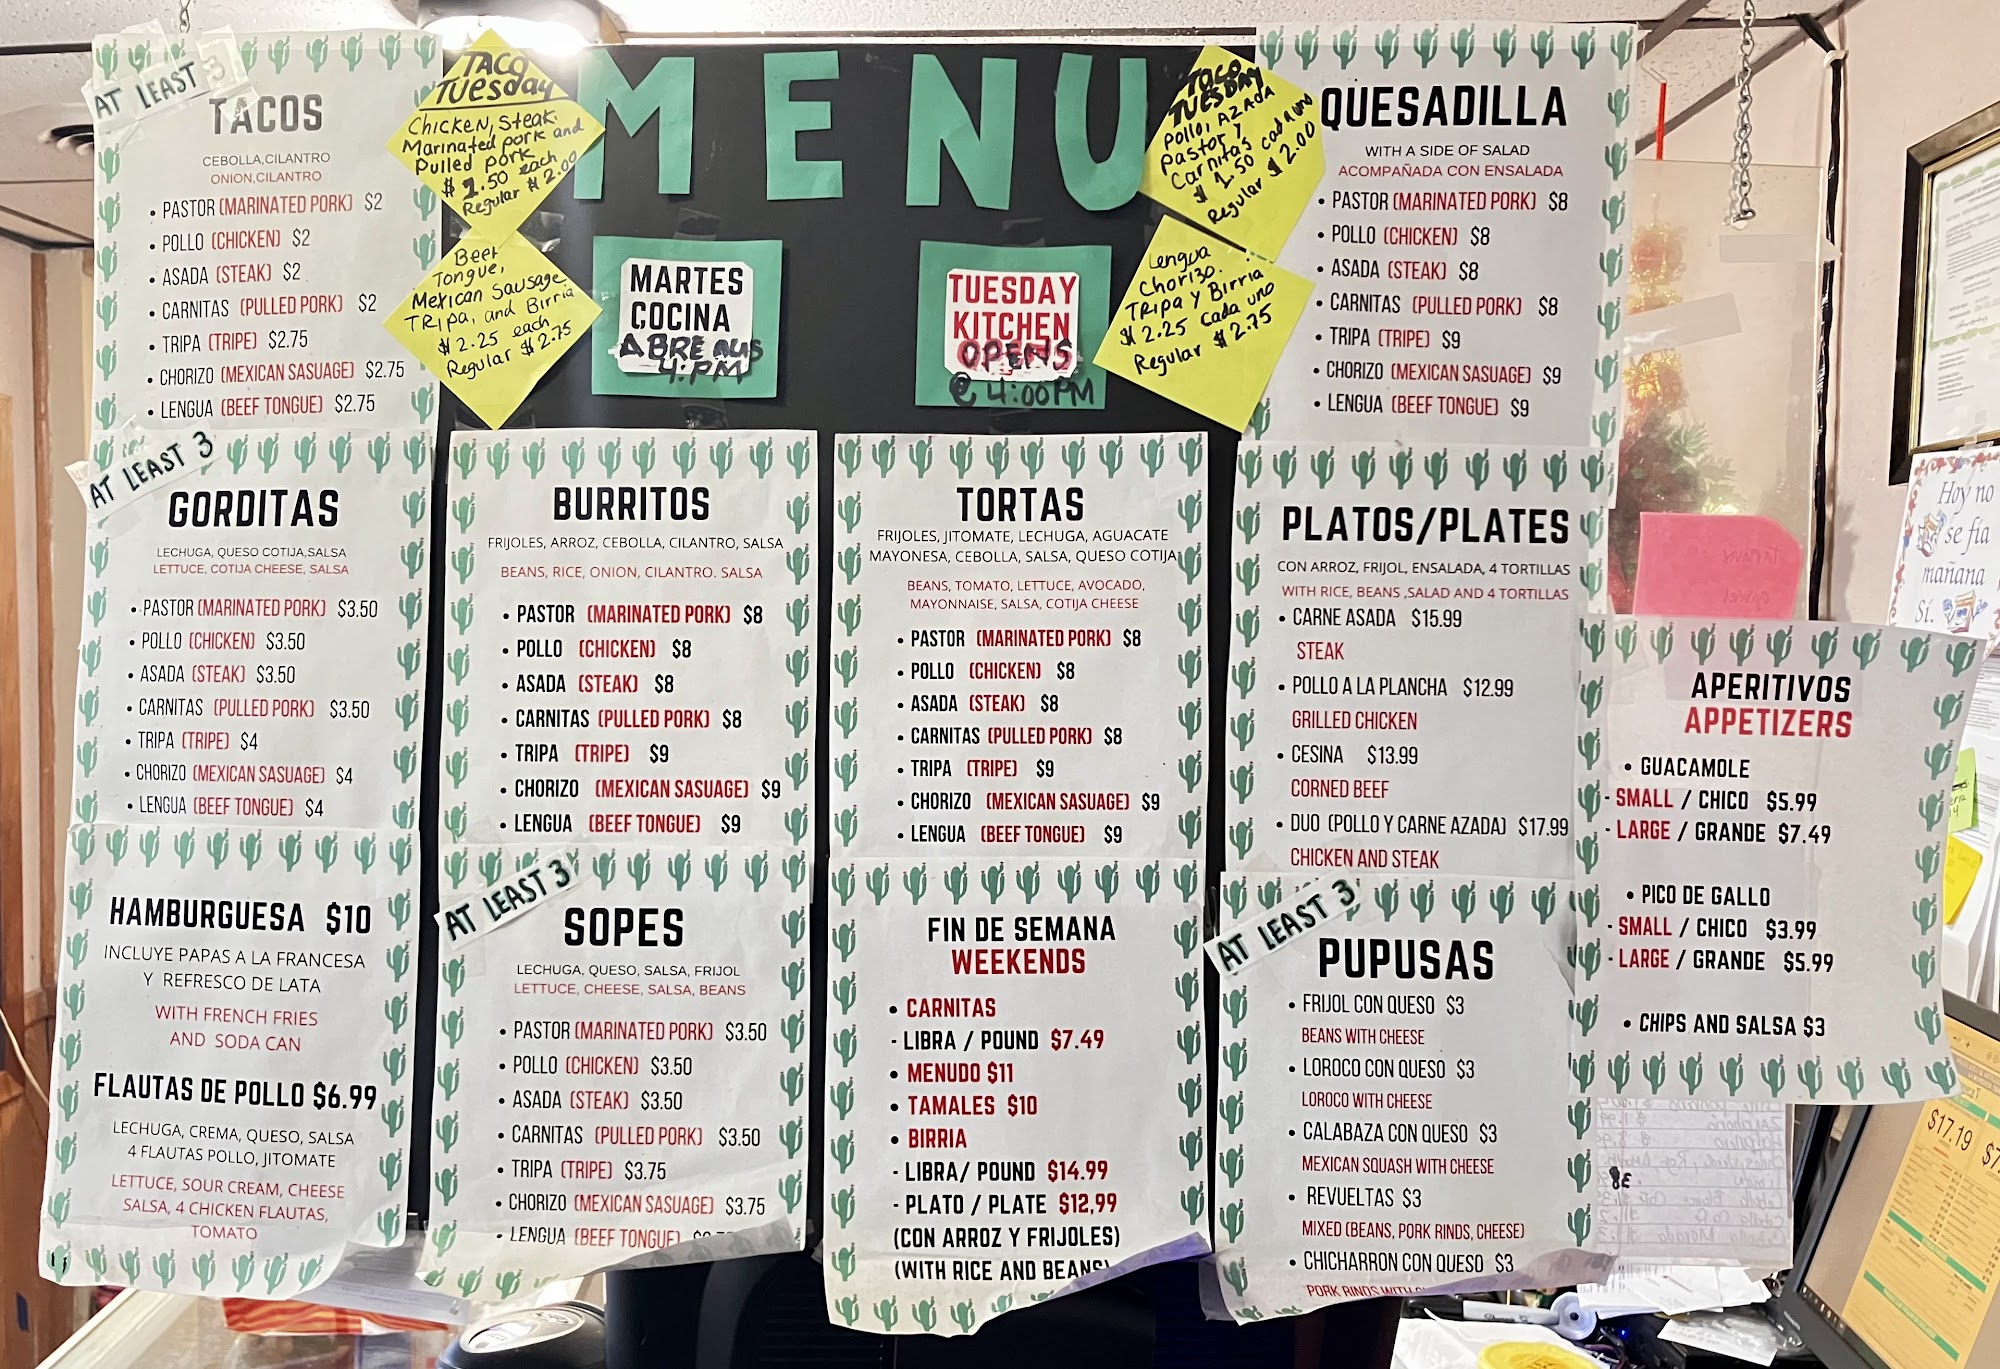 AT LEAST 3
TACOS
CEBOLLA,CILANTRO
ONION,CILANTRO
• PASTOR (MARINATED PORK) $2
• POLLO (CHICKEN) $2
• ASADA (STEAK) $2
• CARNITAS (PULLED PORK) $2
• TRIPA (TRIPE) $2.75
• CHORIZO (MEXICAN SASUAGE) $2.75
• LENGUA (BEEF TONGUE) $2.75
TACO
TUESday
Chicken, Steak
Marinated pork and
Pulled pork
$1.50 each
Regular $2.00
Beef
Tongue,
Mexican Sausage
TRipa, and Birria
$2.25 each
Regular $2.75
MENU
MARTES
COCINA
ABRE a las
4:PM
TUESDAY
KITCHEN
OPENS
@ 4:00PM
Taco
TUESDAY
pollo, AZADA
pastor y
Carnitas
$1.50 cada uno
Regular $2.00
Lengua
Chorizo.
TRipa y Birria
$2.25 cada uno
Regular $2.75
QUESADILLA
WITH A SIDE OF SALAD
ACOMPAÑADA CON ENSALADA
• PASTOR (MARINATED PORK) $8
• POLLO (CHICKEN) $8
• ASADA (STEAK) $8
• CARNITAS (PULLED PORK) $8
• TRIPA (TRIPE) $9
• CHORIZO (MEXICAN SASUAGE) $9
• LENGUA (BEEF TONGUE) $9
AT LEAST 3
GORDITAS
LECHUGA, QUESO COTIJA,SALSA
LETTUCE, COTIJA CHEESE, SALSA
• PASTOR (MARINATED PORK) $3.50
• POLLO (CHICKEN) $3.50
• ASADA (STEAK) $3.50
• CARNITAS (PULLED PORK) $3.50
• TRIPA (TRIPE) $4
• CHORIZO (MEXICAN SASUAGE) $4
• LENGUA (BEEF TONGUE) $4
BURRITOS
FRIJOLES, ARROZ, CEBOLLA, CILANTRO, SALSA
BEANS, RICE, ONION, CILANTRO. SALSA
• PASTOR (MARINATED PORK) $8
• POLLO (CHICKEN) $8
• ASADA (STEAK) $8
• CARNITAS (PULLED PORK) $8
• TRIPA (TRIPE) $9
• CHORIZO (MEXICAN SASUAGE) $9
• LENGUA (BEEF TONGUE) $9
TORTAS
FRIJOLES, JITOMATE, LECHUGA, AGUACATE
MAYONESA, CEBOLLA, SALSA, QUESO COTIJA
BEANS, TOMATO, LETTUCE, AVOCADO,
MAYONNAISE, SALSA, COTIJA CHEESE
• PASTOR (MARINATED PORK) $8
• POLLO (CHICKEN) $8
• ASADA (STEAK) $8
• CARNITAS (PULLED PORK) $8
• TRIPA (TRIPE) $9
• CHORIZO (MEXICAN SASUAGE) $9
• LENGUA (BEEF TONGUE) $9
PLATOS/PLATES
CON ARROZ, FRIJOL, ENSALADA, 4 TORTILLAS
WITH RICE, BEANS ,SALAD AND 4 TORTILLAS
• CARNE ASADA $15.99
STEAK
• POLLO A LA PLANCHA $12.99
GRILLED CHICKEN
• CESINA $13.99
CORNED BEEF
• DUO (POLLO Y CARNE AZADA) $17.99
CHICKEN AND STEAK
APERITIVOS
APPETIZERS
• GUACAMOLE
- SMALL / CHICO $5.99
- LARGE / GRANDE $7.49
• PICO DE GALLO
- SMALL / CHICO $3.99
- LARGE / GRANDE $5.99
• CHIPS AND SALSA $3
HAMBURGUESA $10
INCLUYE PAPAS A LA FRANCESA
Y REFRESCO DE LATA
WITH FRENCH FRIES
AND SODA CAN
FLAUTAS DE POLLO $6.99
LECHUGA, CREMA, QUESO, SALSA
4 FLAUTAS POLLO, JITOMATE
LETTUCE, SOUR CREAM, CHEESE
SALSA, 4 CHICKEN FLAUTAS,
TOMATO
AT LEAST 3
SOPES
LECHUGA, QUESO, SALSA, FRIJOL
LETTUCE, CHEESE, SALSA, BEANS
• PASTOR (MARINATED PORK) $3.50
• POLLO (CHICKEN) $3.50
• ASADA (STEAK) $3.50
• CARNITAS (PULLED PORK) $3.50
• TRIPA (TRIPE) $3.75
• CHORIZO (MEXICAN SASUAGE) $3.75
• LENGUA (BEEF TONGUE)
FIN DE SEMANA
WEEKENDS
• CARNITAS
- LIBRA / POUND $7.49
• MENUDO $11
• TAMALES $10
• BIRRIA
- LIBRA/ POUND $14.99
- PLATO / PLATE $12,99
(CON ARROZ Y FRIJOLES)
(WITH RICE AND BEANS)
AT LEAST 3
PUPUSAS
• FRIJOL CON QUESO $3
BEANS WITH CHEESE
• LOROCO CON QUESO $3
LOROCO WITH CHEESE
• CALABAZA CON QUESO $3
MEXICAN SQUASH WITH CHEESE
• REVUELTAS $3
MIXED (BEANS, PORK RINDS, CHEESE)
• CHICHARRON CON QUESO $3
PORK RINDS WITH
Hoy no
se fía
mañana
Sí.
$17.19